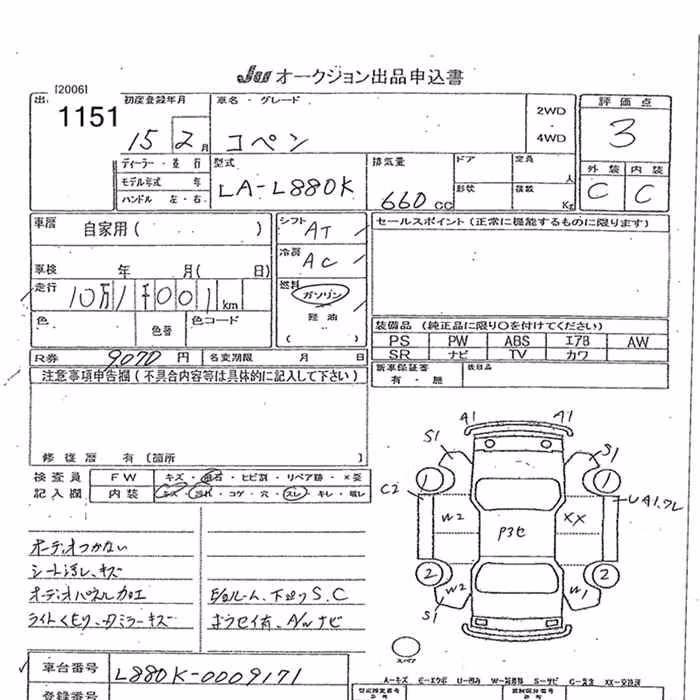 JU オークション出品申込書
[2006]
出 1151
初度登録年月 15 2月
車名・グレード コペン
2WD
4WD
評価点 3
外装 内装
C C
ディーラー・並行
モデル年式 年
ハンドル 左・右
型式 LA-L880K
排気量 660 cc
ドア 定員 人
形状 積載 Kg
車歴 自家用( )
シフト AT
冷房 AC
セールスポイント(正常に機能するものに限ります)
車検 年 月( 日)
走行 10万1千001km
燃料 ガソリン
軽油
( )
色 色替 色コード
装備品 (純正品に限り○を付けてください)
PS PW ABS エアB AW
SR ナビ TV カワ
R券 9070 円 名変期限 月 日
新車保証書 有・無
後日品
注意事項申告欄(不具合内容等は具体的に記入して下さい)
修復歴 有(箇所 )
検査員 FW キズ・飛石・ヒビ割・リペア跡・X要
記入欄 内装 キズ・汚れ・コゲ・穴・スレ・キレ・壊レ
オーディオつかない
シート汚レ、キズ
オーディオパネル加工
ライトくもり、
下廻りS.C
A/Wナビ
A1 A1
S1 S1
1 1
C2 UA1.ワレ
W2 P3セ XX
2 2
W2 W1
S1
スペア
A—キズ E—エクボ U—凹み W—波 S—サビ C—腐食 XX—交換済
車台番号 L880K-0009171
登録番号